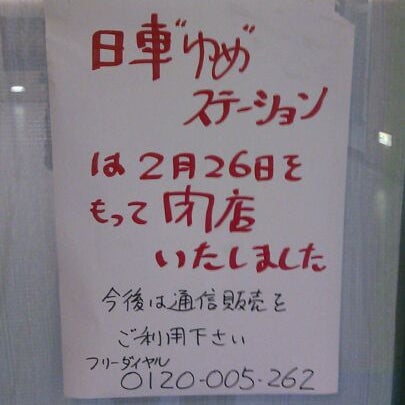 日車"ゆめ"
ステーション
は2月26日を
もって閉店
いたしました
今後は通信販売を
ご利用下さい
フリーダイヤル
0120-005-262